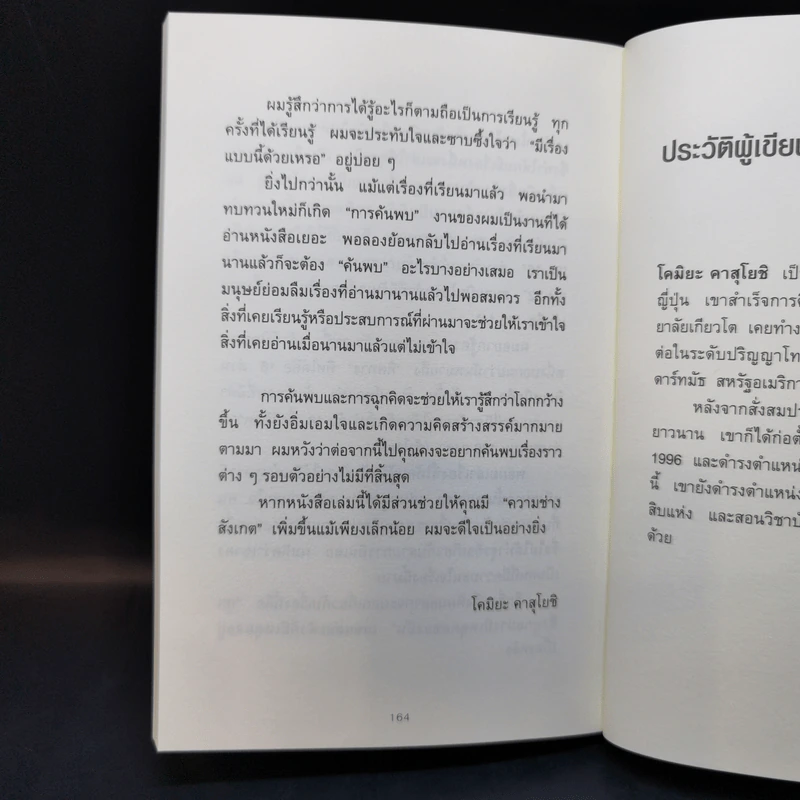 ผมรู้สึกว่าการได้รู้อะไรก็ตามถือเป็นการเรียนรู้ ทุก
ครั้งที่ได้เรียนรู้ ผมจะประทับใจและซาบซึ้งใจว่า “มีเรื่อง
แบบนี้ด้วยเหรอ” อยู่บ่อย ๆ
ยิ่งไปกว่านั้น แม้แต่เรื่องที่เรียนมาแล้ว พอนำมา
ทบทวนใหม่ก็เกิด “การค้นพบ” งานของผมเป็นงานที่ได้
อ่านหนังสือเยอะ พอลองย้อนกลับไปอ่านเรื่องที่เรียนมา
นานแล้วก็จะต้อง “ค้นพบ” อะไรบางอย่างเสมอ เราเป็น
มนุษย์ย่อมลืมเรื่องที่อ่านมานานแล้วไปพอสมควร อีกทั้ง
สิ่งที่เคยเรียนรู้หรือประสบการณ์ที่ผ่านมาจะช่วยให้เราเข้าใจ
สิ่งที่เคยอ่านเมื่อนานมาแล้วแต่ไม่เข้าใจ
การค้นพบและการฉุกคิดจะช่วยให้เรารู้สึกว่าโลกกว้าง
ขึ้น ทั้งยังอิ่มเอมใจและเกิดความคิดสร้างสรรค์มากมาย
ตามมา ผมหวังว่าต่อจากนี้ไปคุณคงจะอยากค้นพบเรื่องราว
ต่าง ๆ รอบตัวอย่างไม่มีที่สิ้นสุด
หากหนังสือเล่มนี้ได้มีส่วนช่วยให้คุณมี “ความช่าง
สังเกต” เพิ่มขึ้นแม้เพียงเล็กน้อย ผมจะดีใจเป็นอย่างยิ่ง
โคมิยะ คาสุโยชิ
164
ประวัติผู้เขียน
โคมิยะ คาสุโยชิ เป็
ญี่ปุ่น เขาสำเร็จการศึ
ยาลัยเกียวโต เคยทำง
ต่อในระดับปริญญาโท
ดาร์ทมัธ สหรัฐอเมริกา
หลังจากสั่งสมปร
ยาวนาน เขาก็ได้ก่อตั้
1996 และดำรงตำแหน่
นี้ เขายังดำรงตำแหน่ง
สิบแห่ง และสอนวิชาบั
ด้วย